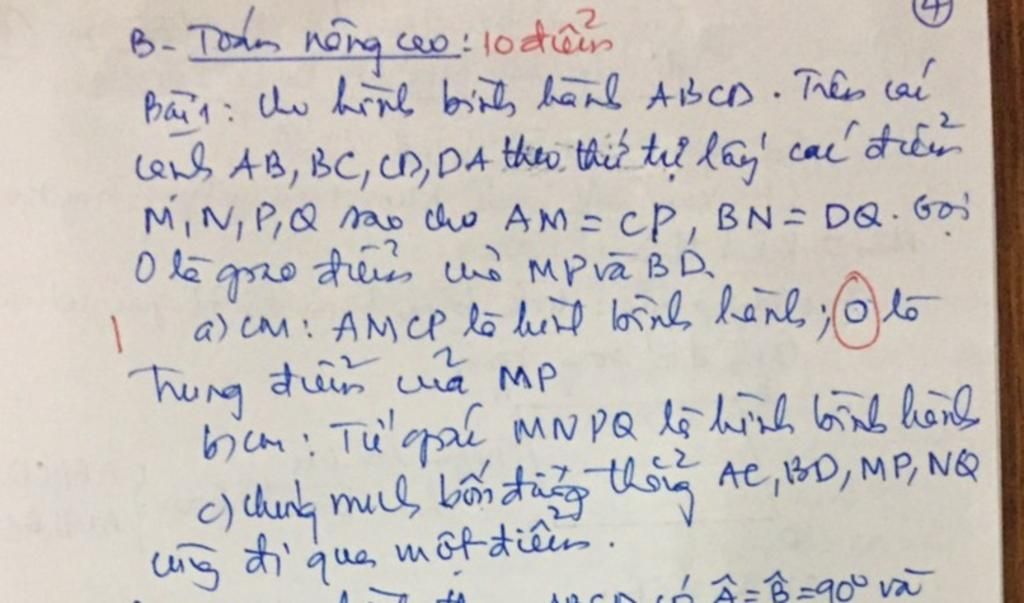 4
B - Toán nâng cao: 10 điểm
Bài 1: Cho hình bình hành ABCD. Trên các
cạnh AB, BC, CD, DA theo thứ tự lấy các điểm
M, N, P, Q sao cho AM = CP, BN = DQ. Gọi
O là giao điểm của MP và BD.
1 a) CM: AMCP là hình bình hành; O là
Trung điểm của MP
b) CM: Tứ giác MNPQ là hình bình hành
c) Chứng minh bốn đường thẳng AC, BD, MP, NQ
cùng đi qua một điểm.
ABCD có Â = B̂ = 90° và